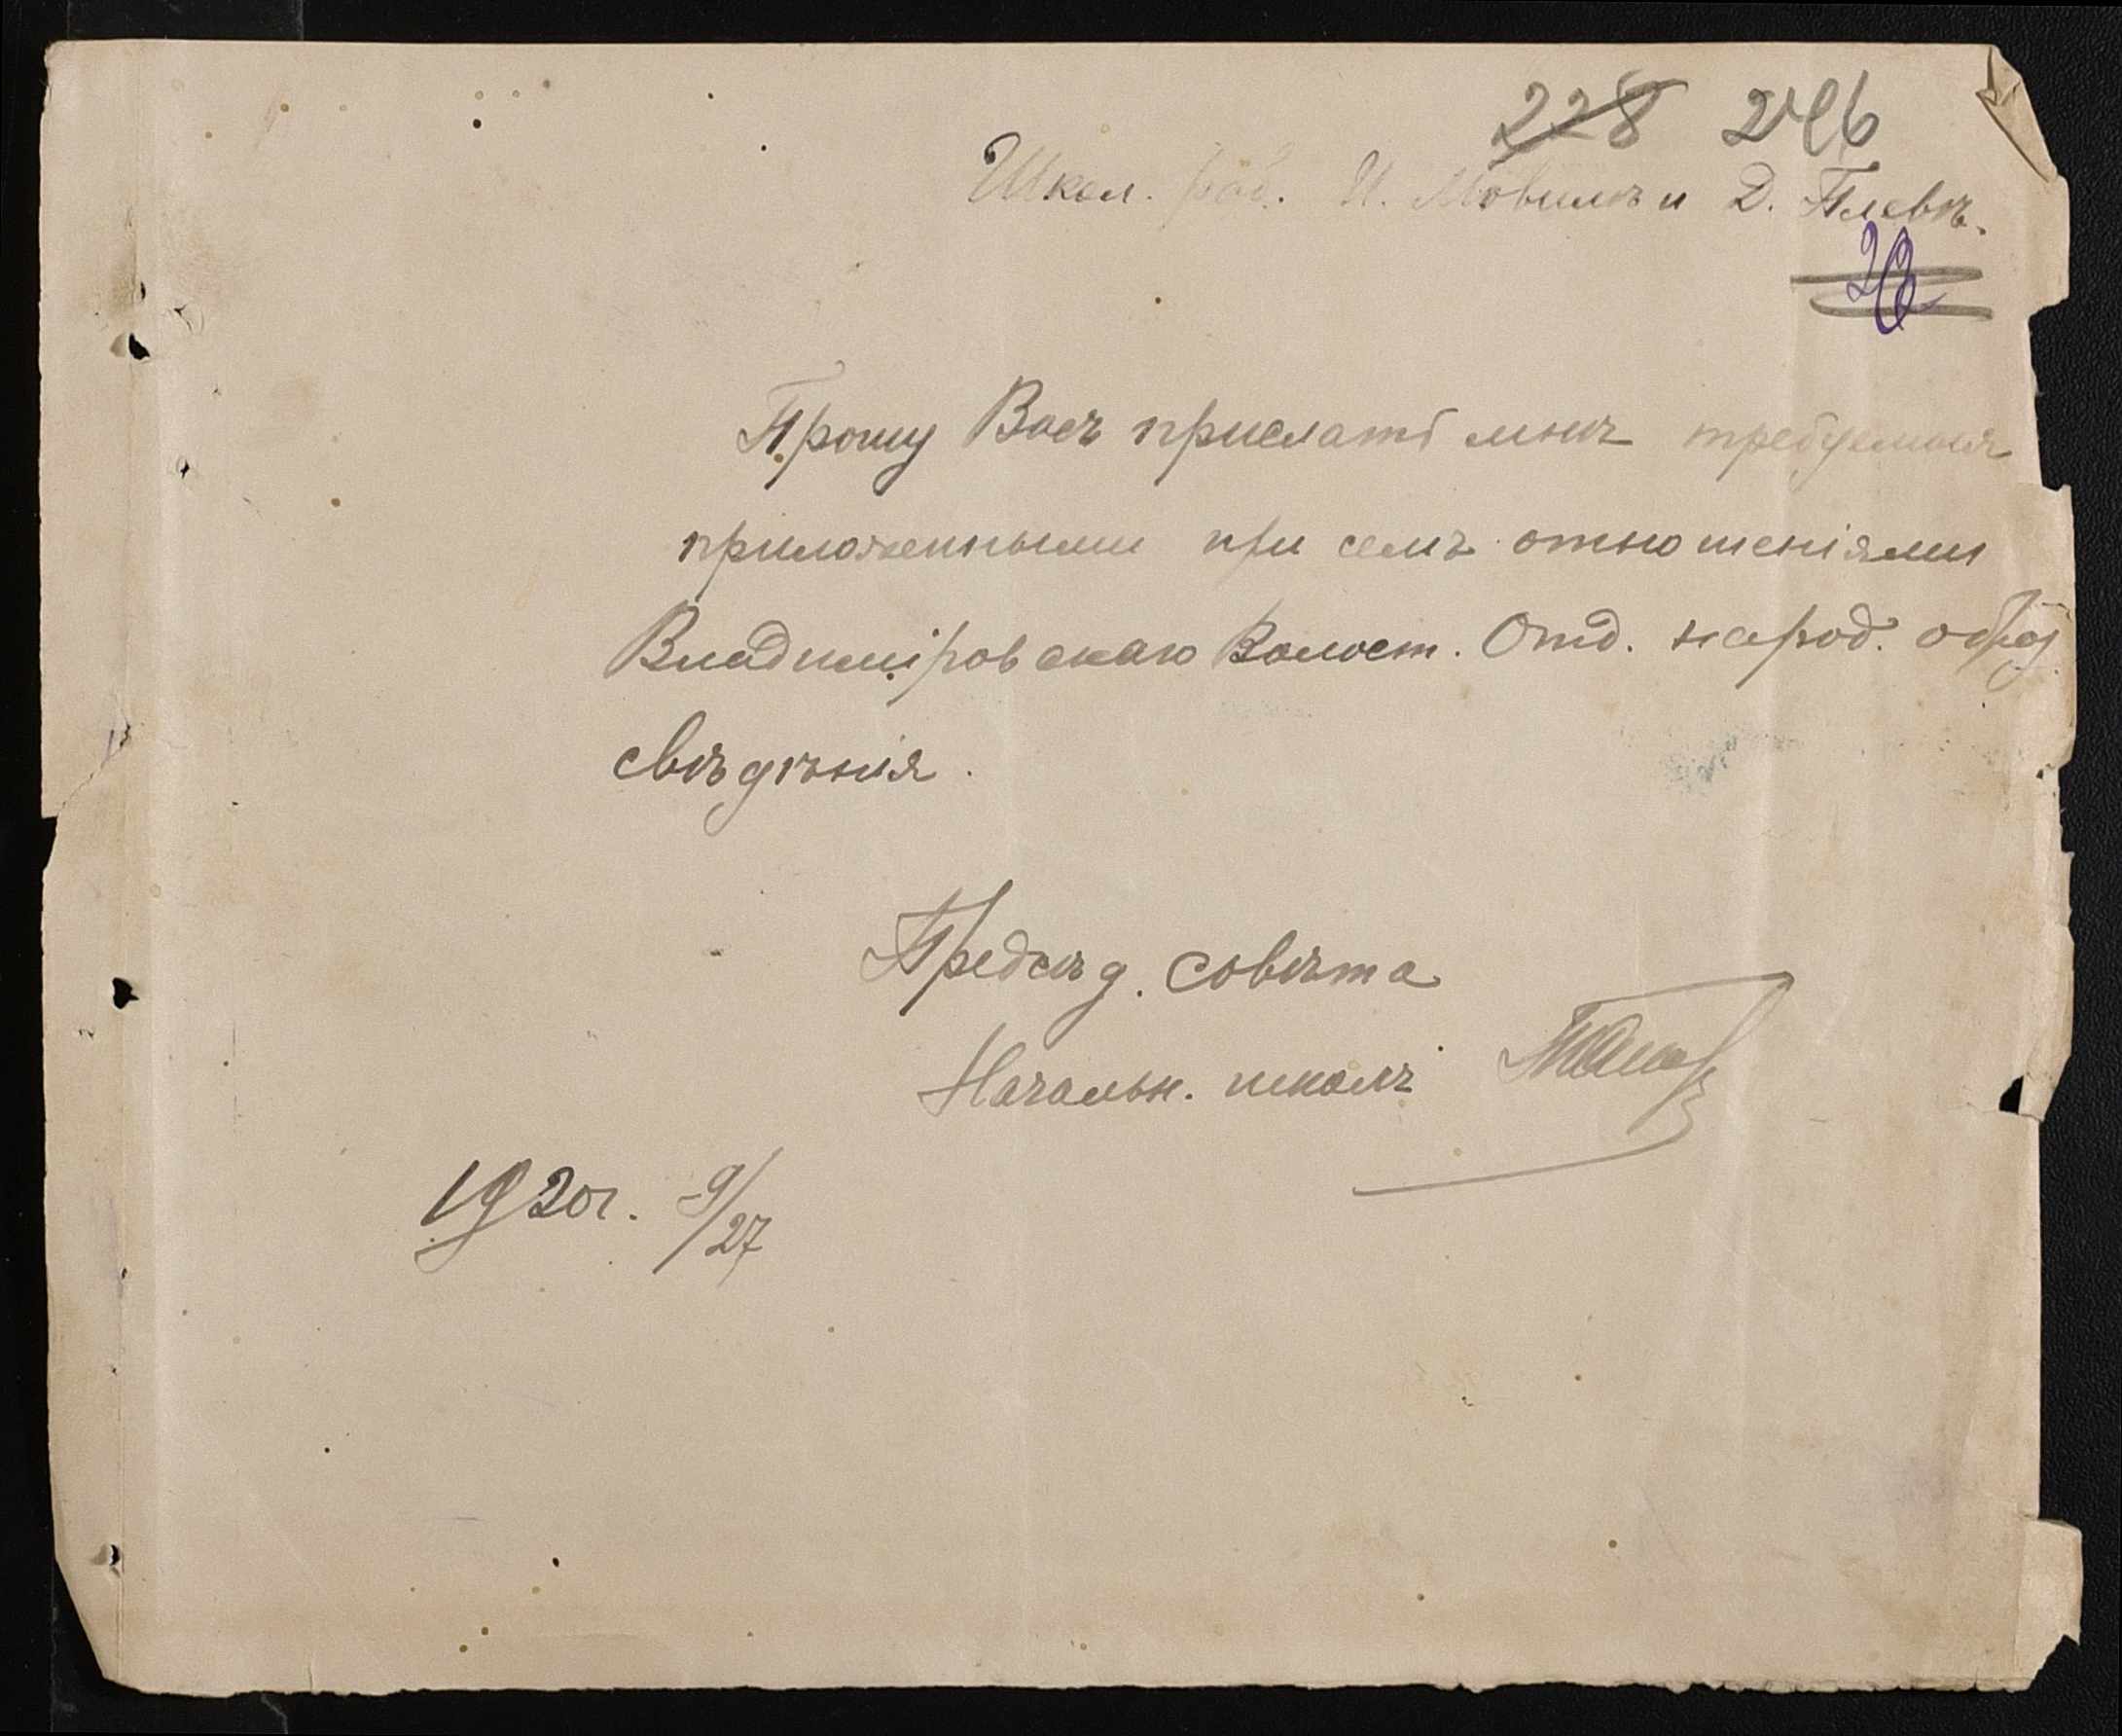 228 246
Школ. раб. И. Мовилѣ и Д. Плевѣ.
26
Прошу Васъ прислать мнѣ требуемыя
приложенными при семъ отношеніями
Владиміровскаго Волост. Отд. народ. образ.
свѣдѣнія.
Предсѣд. совѣта
Начальн. школъ
1920 г. 9/27